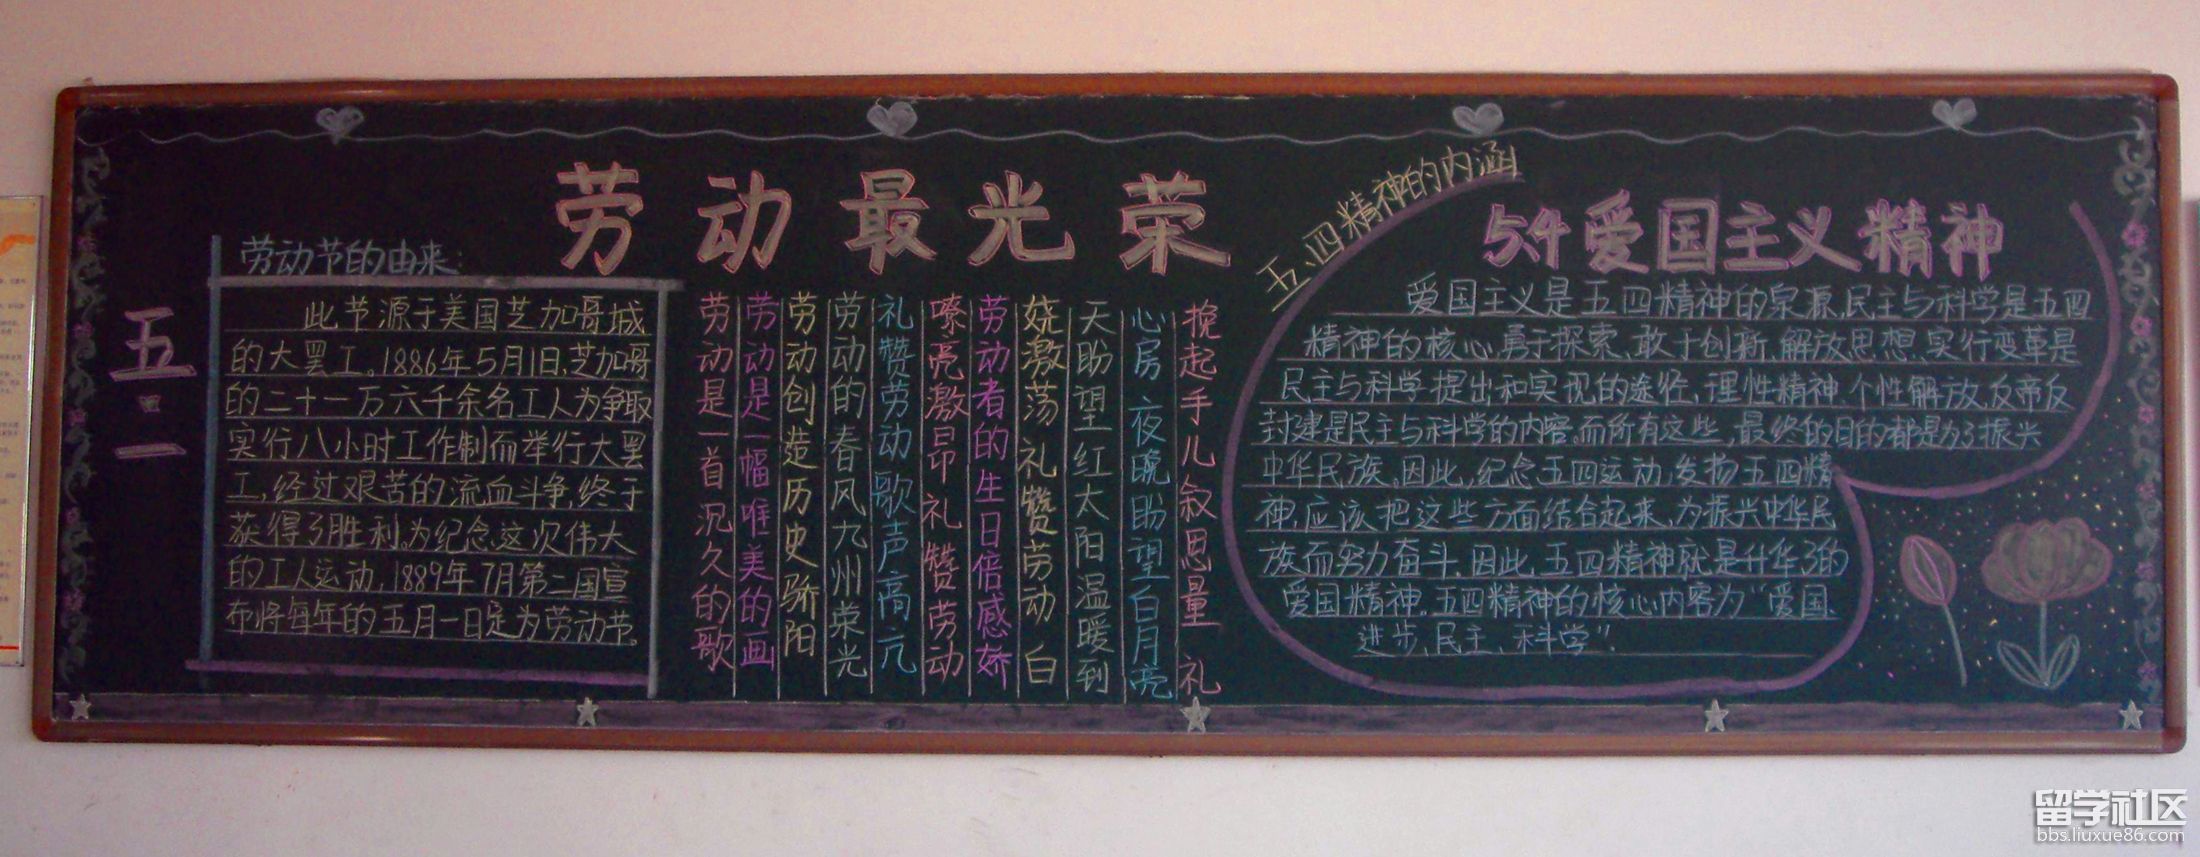 劳动最光荣
五·一
劳动节的由来:
此节源于美国芝加哥城
的大罢工。1886年5月1日,芝加哥
的二十一万六千余名工人为争取
实行八小时工作制而举行大罢
工,经过艰苦的流血斗争,终于
获得了胜利。为纪念这次伟大
的工人运动,1889年7月第二国宣
布将每年的五月一日定为劳动节。
劳动是一首沉久的歌
劳动是一幅唯美的画
劳动创造历史骄阳
劳动的春风九州荣光
礼赞劳动歌声高亢
嘹亮激昂礼赞劳动
劳动者的生日倍感娇
娆激荡礼赞劳动白
天盼望红太阳温暖到
心房夜晚盼望白月亮
挽起手儿叙思量礼
五、四精神的内涵
54爱国主义精神
爱国主义是五四精神的泉源,民主与科学是五四
精神的核心,勇于探索、敢于创新、解放思想、实行变革是
民主与科学提出和实现的途径,理性精神、个性解放、反帝反
封建是民主与科学的内容。而所有这些,最终的目的都是为了振兴
中华民族。因此,纪念五四运动,发扬五四精
神,应该把这些方面结合起来,为振兴中华民
族而努力奋斗。因此,五四精神就是升华了的
爱国精神。五四精神的核心内容为“爱国、
进步、民主、科学”.
留学社区
bbs.liuxue86.com